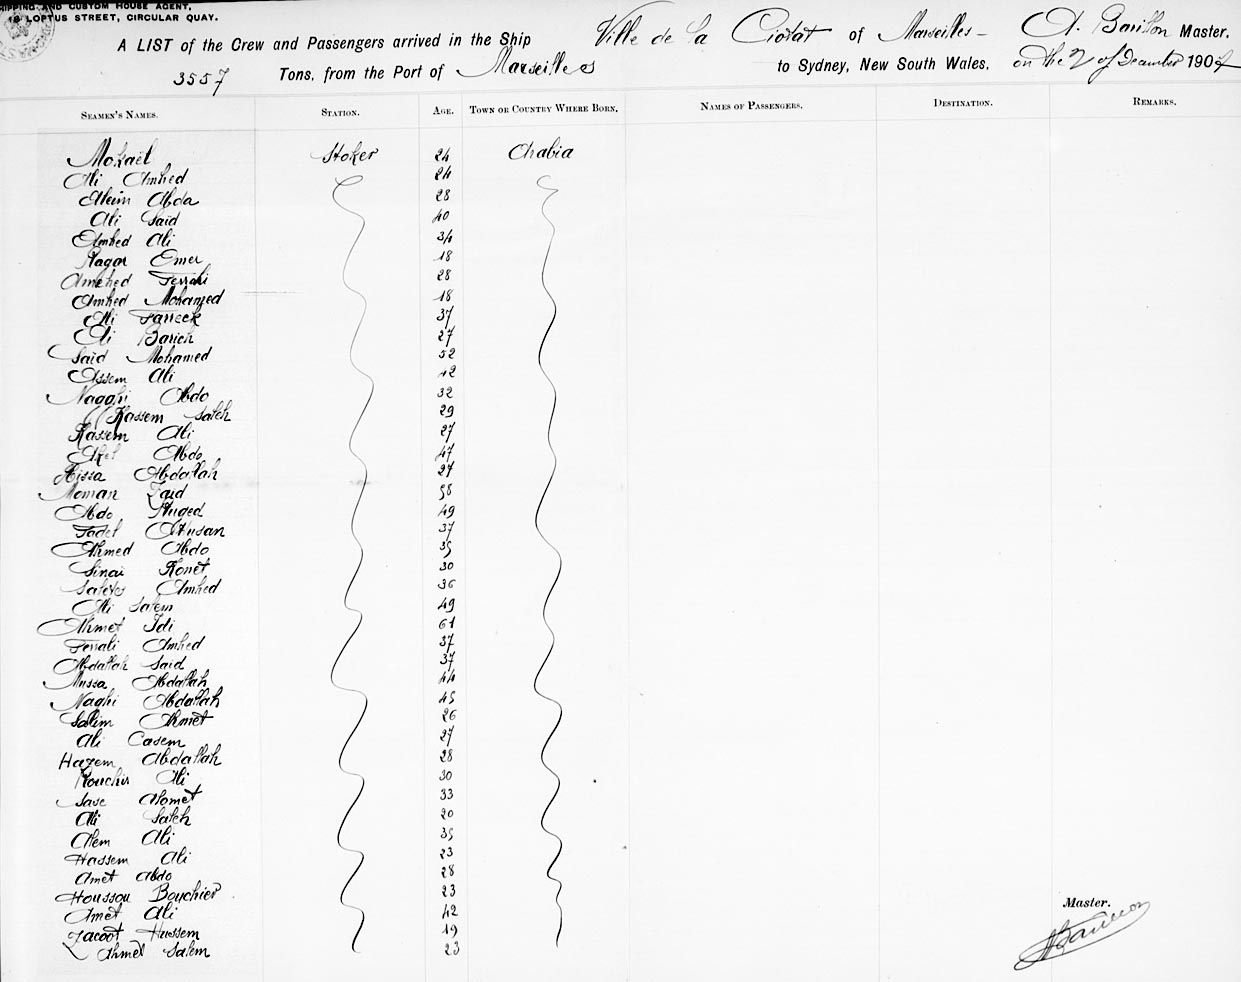 SHIPPING AND CUSTOM HOUSE AGENT,
LOFTUS STREET, CIRCULAR QUAY.
A LIST of the Crew and Passengers arrived in the Ship Ville de la Ciotat of Marseilles - A. Barillon Master,
3557 Tons, from the Port of Marseilles to Sydney, New South Wales, on the 2 of December 190
SEAMEN'S NAMES. STATION. AGE. TOWN OR COUNTRY WHERE BORN. NAMES OF PASSENGERS. DESTINATION. REMARKS.
Mokaël Stoker 24 Arabia
Ali Amhed 24
Aleim Abda 28
Ali Saïd 40
Amhed Ali 34
Nagar Omer 18
Amehed Ferrahi 28
Amhed Mohamed 18
Ali Farreck 37
Ali Barich 27
Saïd Mohamed 52
Assem Ali 42
Nagghi Abdo 32
Kassem Saleh 29
Kassem Ali 27
Abdo 47
Aissa Abdallah 27
Moman Faid 58
Abdo 49
Fadel 37
Ahmed Abdo 35
Sinai Konet 30
Amhed 36
Ali Salem 49
Ahmet Idi 61
Ferrali Amhed 37
Abdallah Saïd 37
Mussa Abdallah 44
Naghi Abdallah 45
Salim Ahmet 26
Ali Casem 27
Hazem Abdallah 28
Kouchir Ali 30
Save Ahomet 33
Ali Saleh 20
Alem Ali 35
Hassem Ali 23
Amet Abdo 28
Houssou Bouchier 23
Amet Ali 42
Zacoot Hussem 19
Ahmet Salem 23
Master.
A Barillon